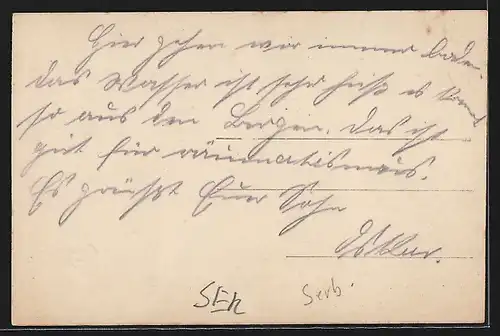 Hier gehen wir immer baden.
das Wasser ist sehr heiß es kommt
so aus den Bergen. das ist
gut für räumatismus.
Es grüßt Euer Sohn
Serb.